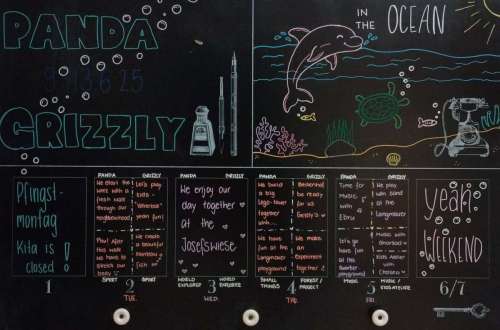 PANDA
9.-13.6.25
GRIZZLY
IN
THE
OCEAN
Pfingst-
montag
Kita is
closed!
1
PANDA
GRIZZLY
We start the
week with a
fresh walk
through our
neighborhood
Let's play
extra
year!
fun
Phu! After
this walk
we have to
stretch our
body
We create
a beautiful
rainbow
fish
SPORT
2
SPORT
TUE.
PANDA
GRIZZLY
We enjoy our
day together
at the
Josefswiese
WORLD
EXPLORER
3
WORLD
EXPLORER
WED.
PANDA
GRIZZLY
We build
a big
Lego-tower
together
with...
be ready
for us
We have
fun at
the
Langmauer
playground
We make
an
Experiment
together
SMALL
THINGS
4
FOREST/
PROJECT
THU.
PANDA
GRIZZLY
Time for
Music
with
Edna
We play
with sand
at the
Langmauer
Let's go
have fun
at the
Quartier
playground
Music with
Kids Atelier
with
MUSIC
5
MUSIC/
KIDS ATELIER
FRI.
yeah
WEEKEND
6/7